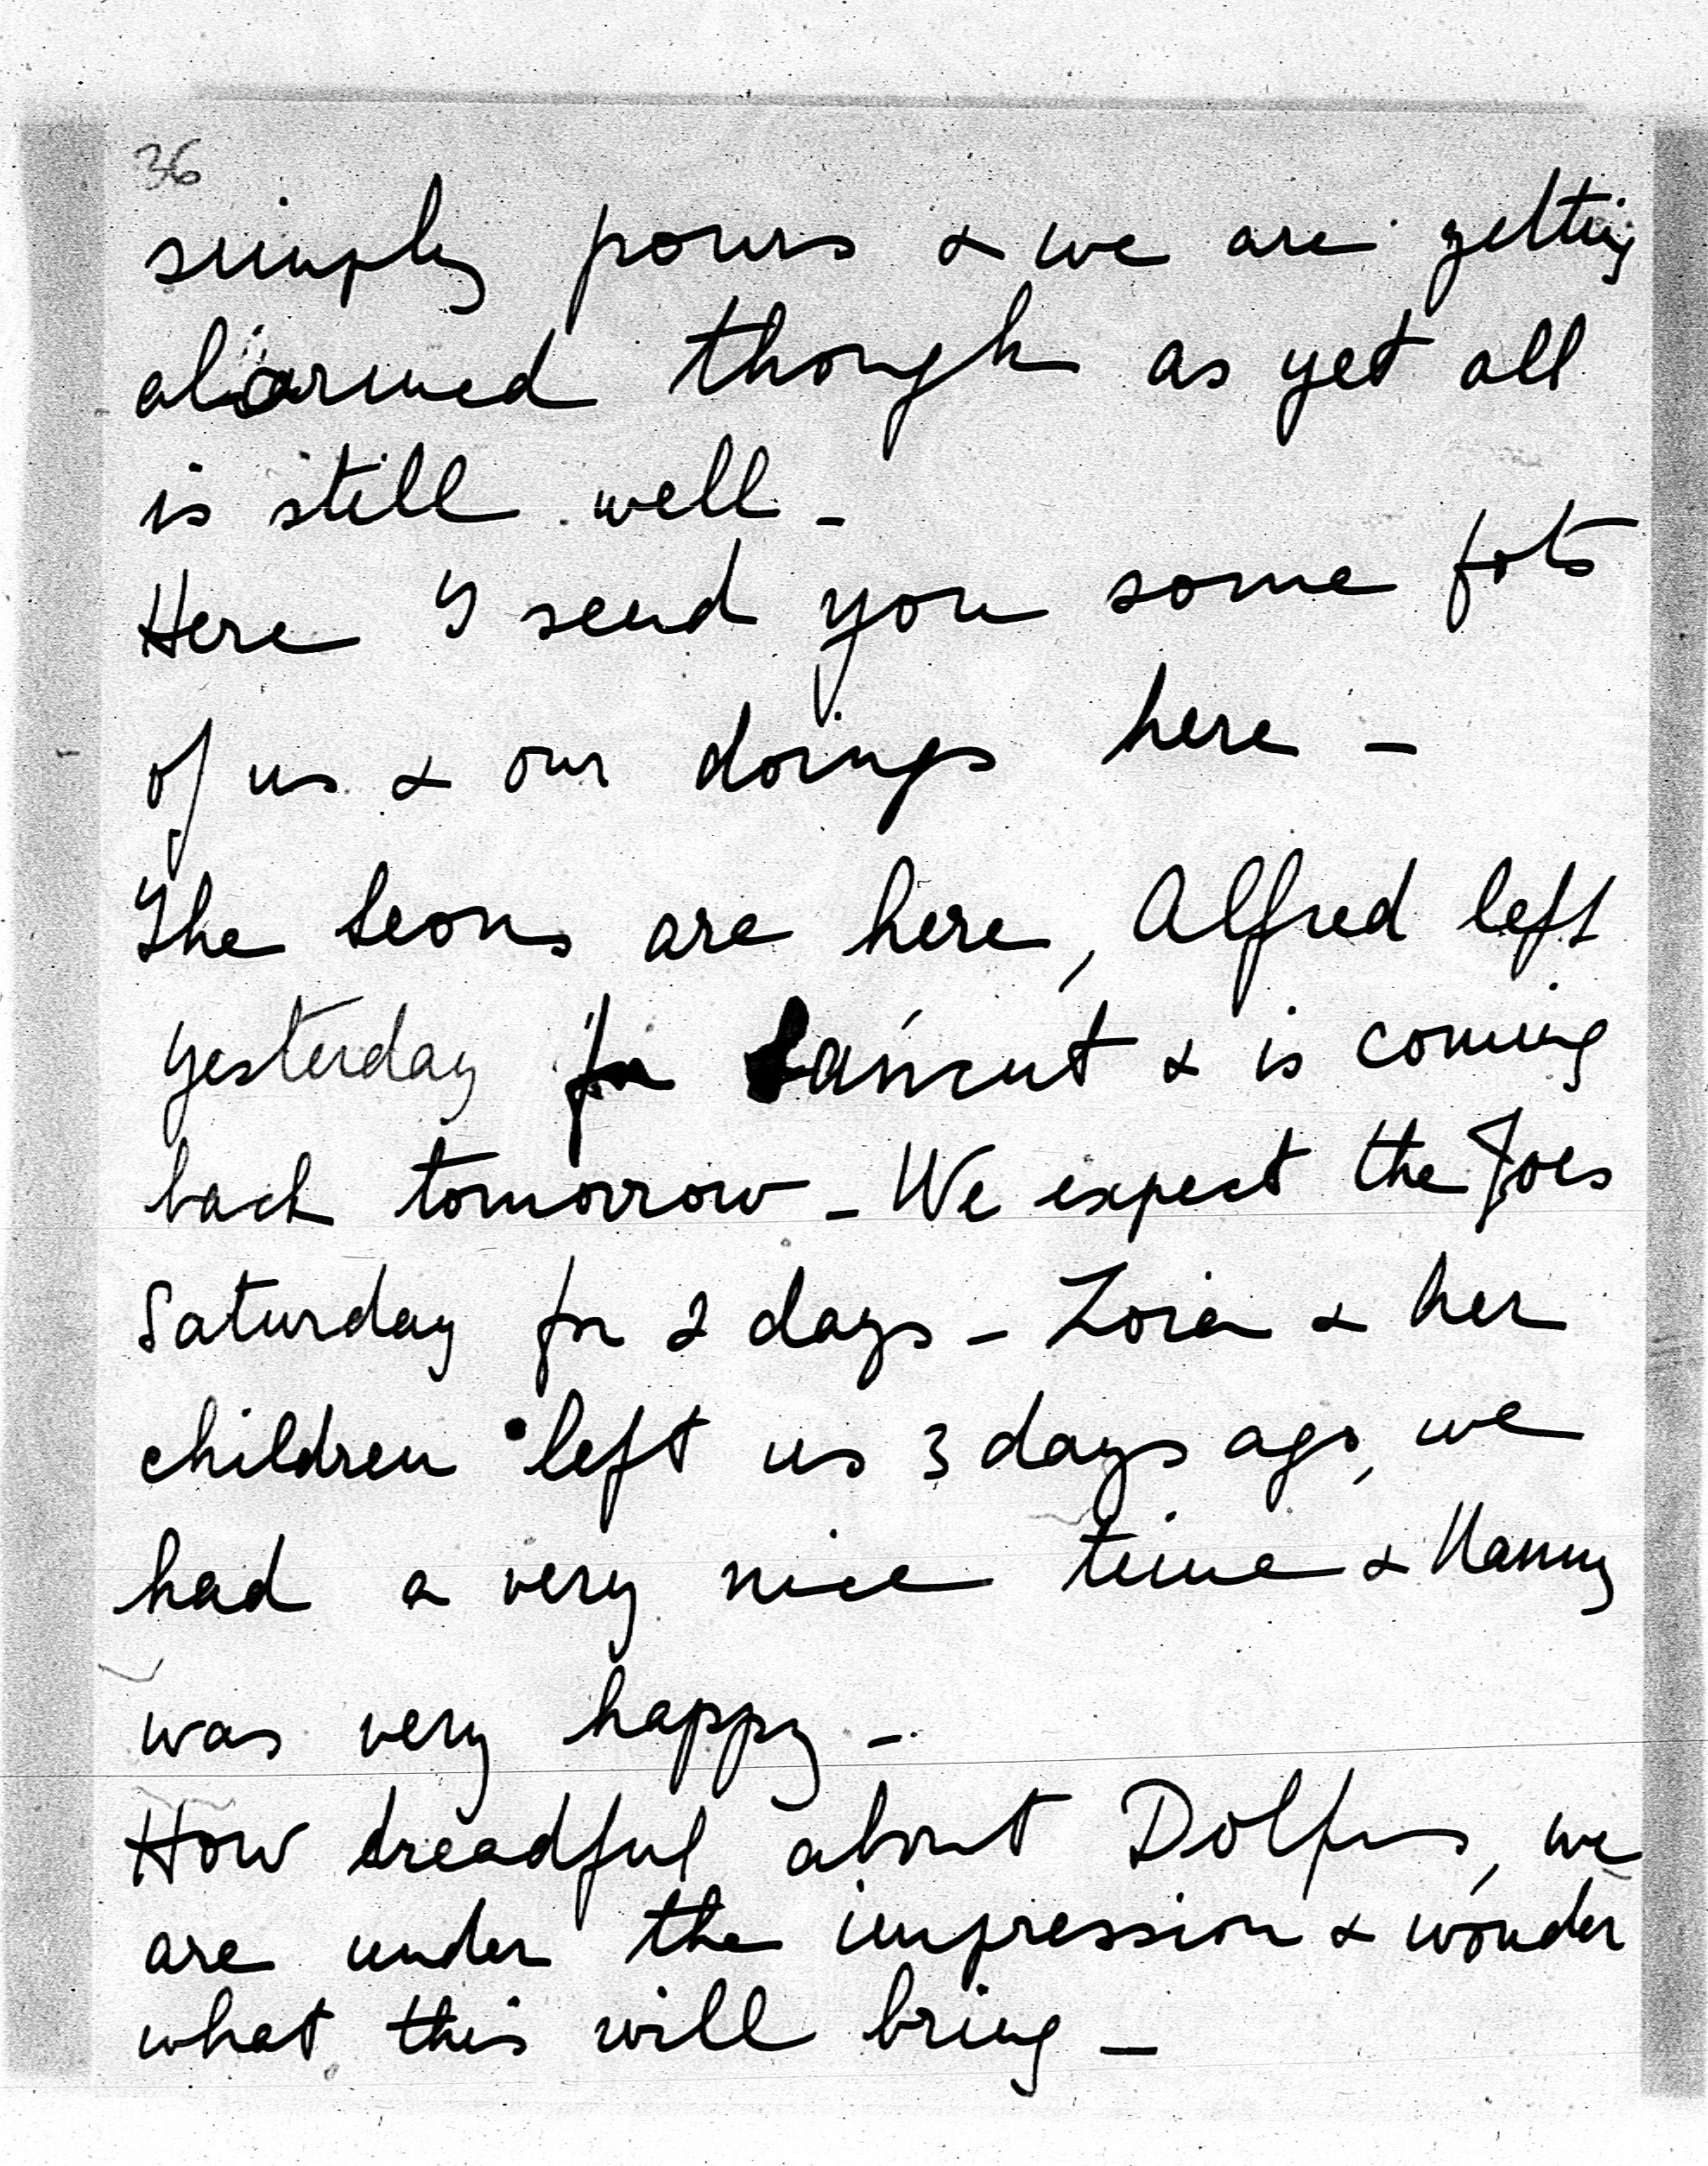 36
simply pours & we are getting
alarmed though as yet all
is still well -
Here I send you some fots
of us & our doings here -
The Leons are here, Alfred left
yesterday for Łańcut & is coming
back tomorrow - We expect the Joes
Saturday for 2 days - Zoia & her
children left us 3 days ago, we
had a very nice time & Nanny
was very happy -
How dreadful about Dolfus, we
are under the impression & wonder
what this will bring -